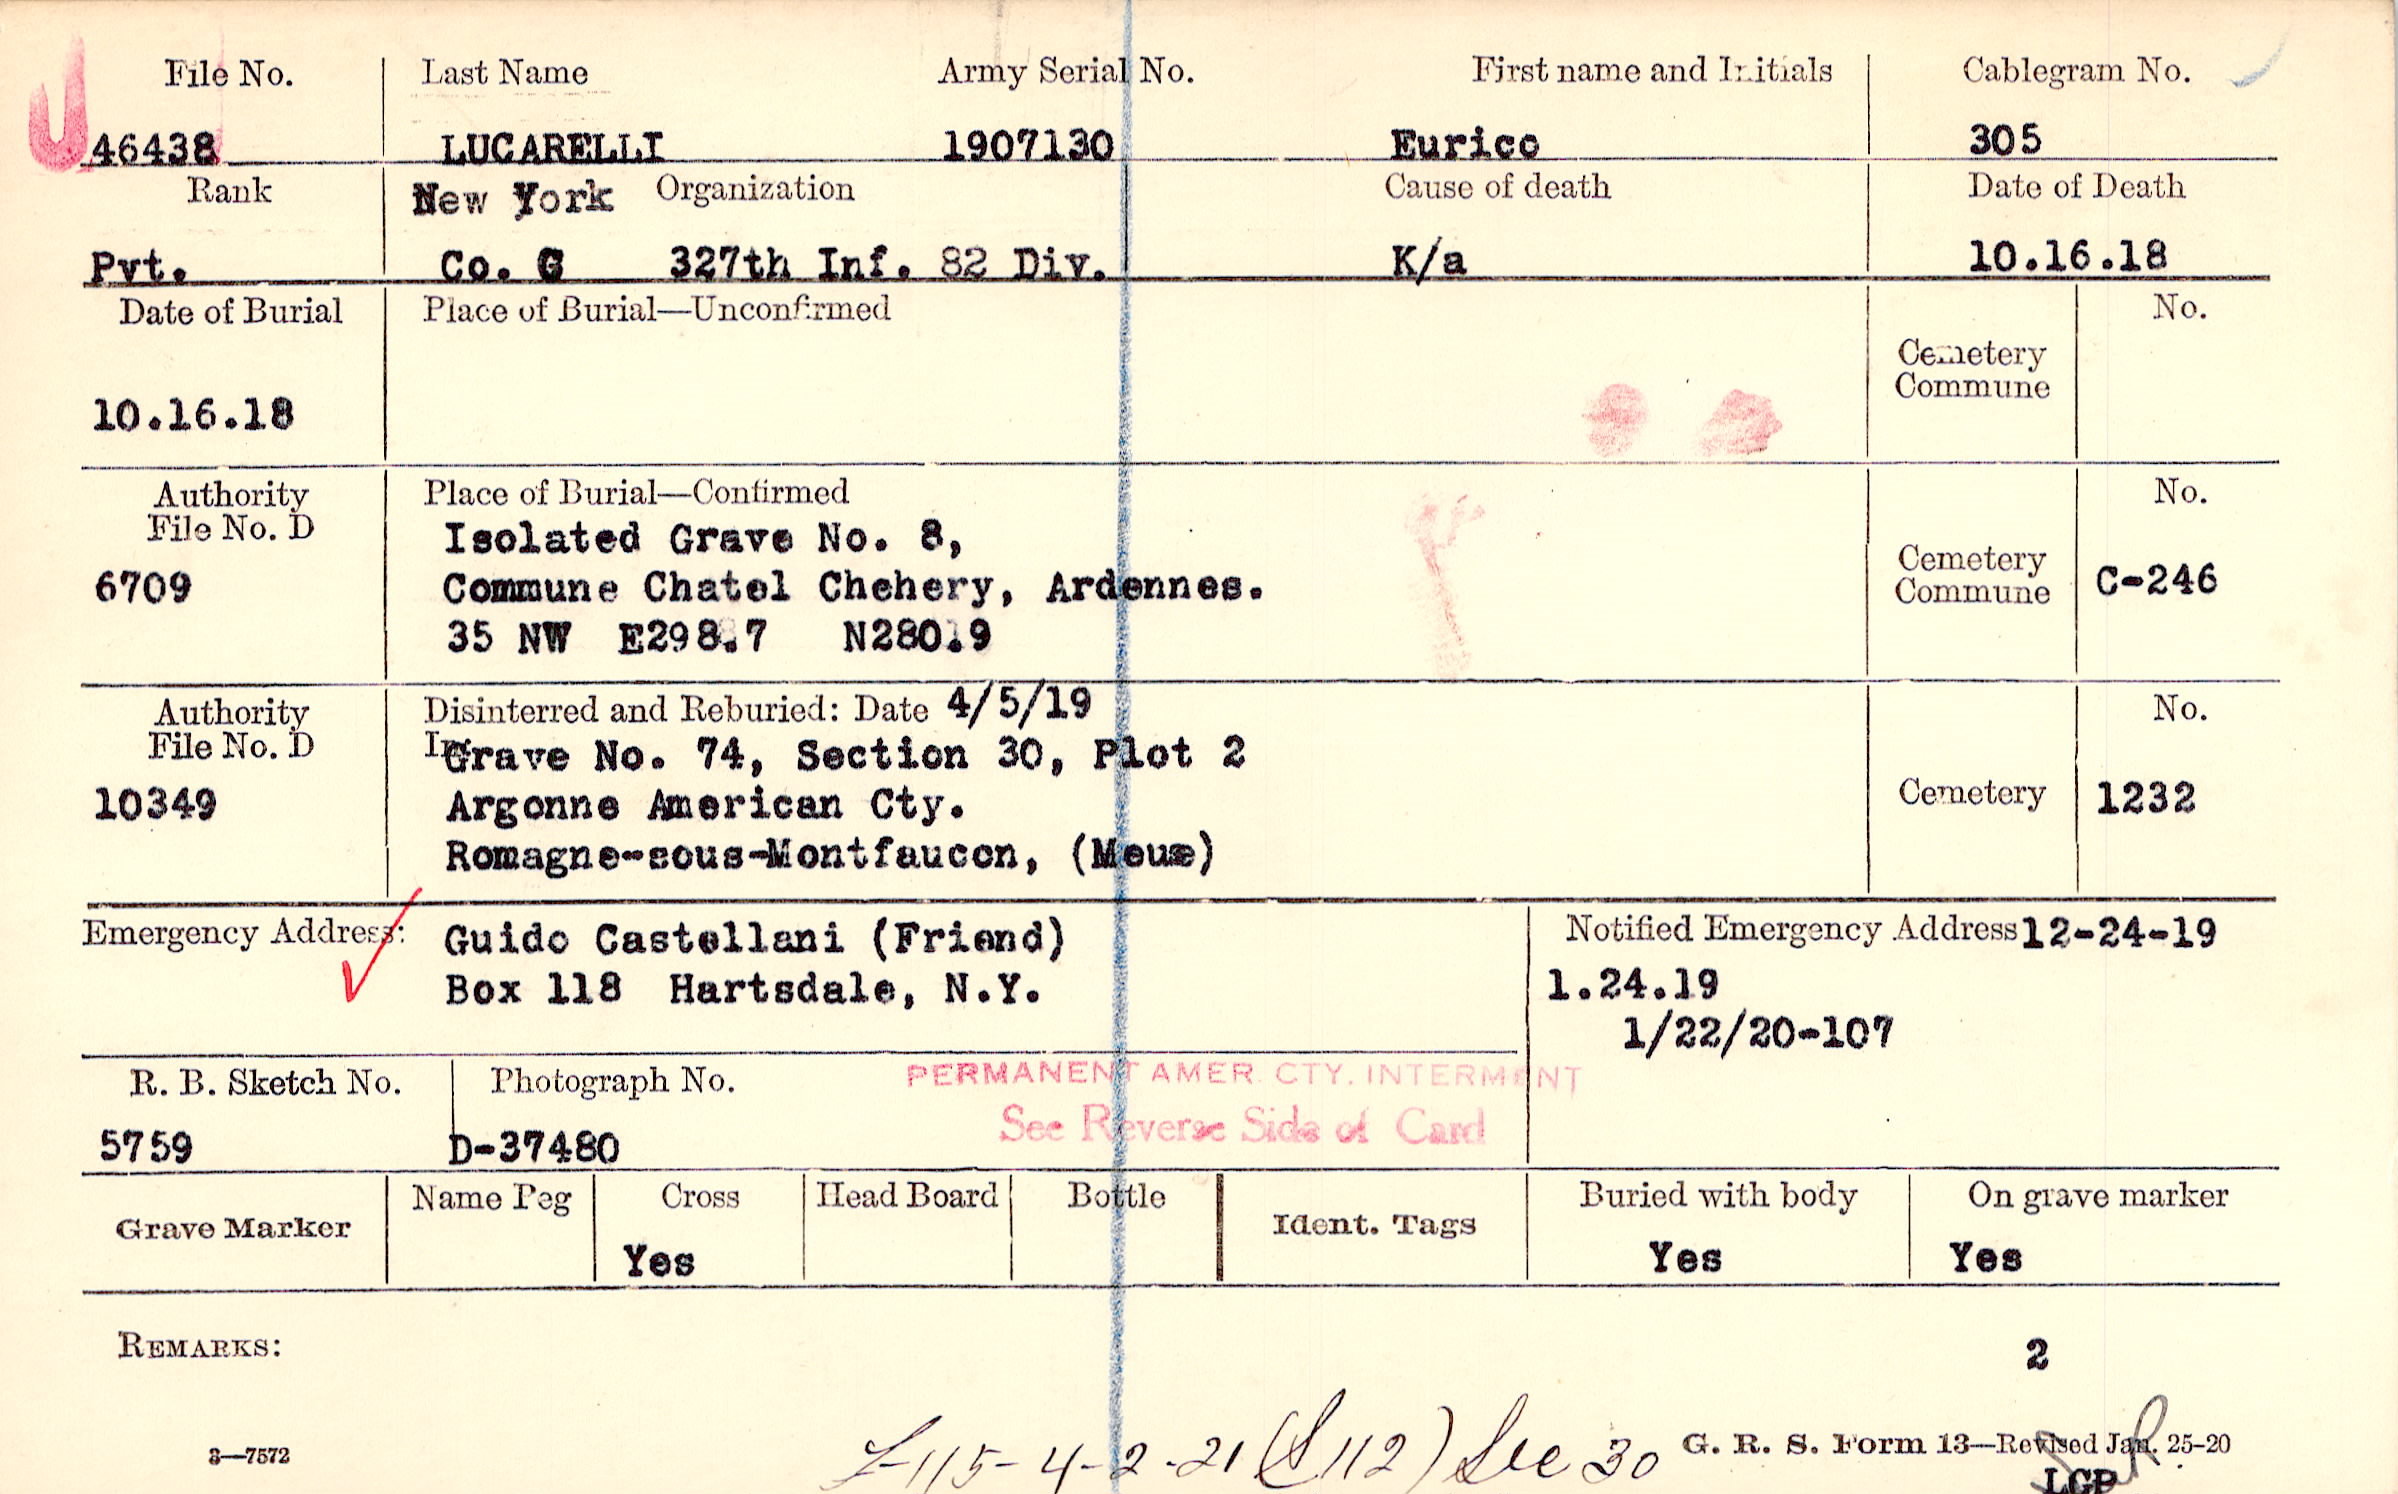 File No. Last Name Army Serial No. First name and Initials Cablegram No.
46438 LUCARELLI 1907130 Eurico 305
Rank New York Organization Cause of death Date of Death
Pvt. Co. G 327th Inf. 82 Div. K/a 10.16.18
Date of Burial Place of Burial—Unconfirmed No.
Cemetery
Commune
10.16.18
Authority Place of Burial—Confirmed No.
File No. D Isolated Grave No. 8,
6709 Commune Chatel Chehery, Ardennes. Cemetery Commune C-246
35 NW E298.7 N280.9
Authority Disinterred and Reburied: Date 4/5/19 No.
File No. D In Grave No. 74, Section 30, Plot 2
10349 Argonne American Cty. Cemetery 1232
Romagne-sous-Montfaucon, (Meuse)
Emergency Address: Guido Castellani (Friend) Notified Emergency Address 12-24-19
Box 118 Hartsdale, N.Y. 1.24.19
1/22/20-107
R. B. Sketch No. Photograph No. PERMANENT AMER. CTY. INTERMENT
See Reverse Side of Card
5759 D-37480
Grave Marker Name Peg Cross Head Board Bottle Ident. Tags Buried with body On grave marker
Yes Yes Yes
REMARKS:
2
3—7572 115-4-2-21 (S112) Sec 30 G. R. S. Form 13—Revised Jan. 25-20
LGP